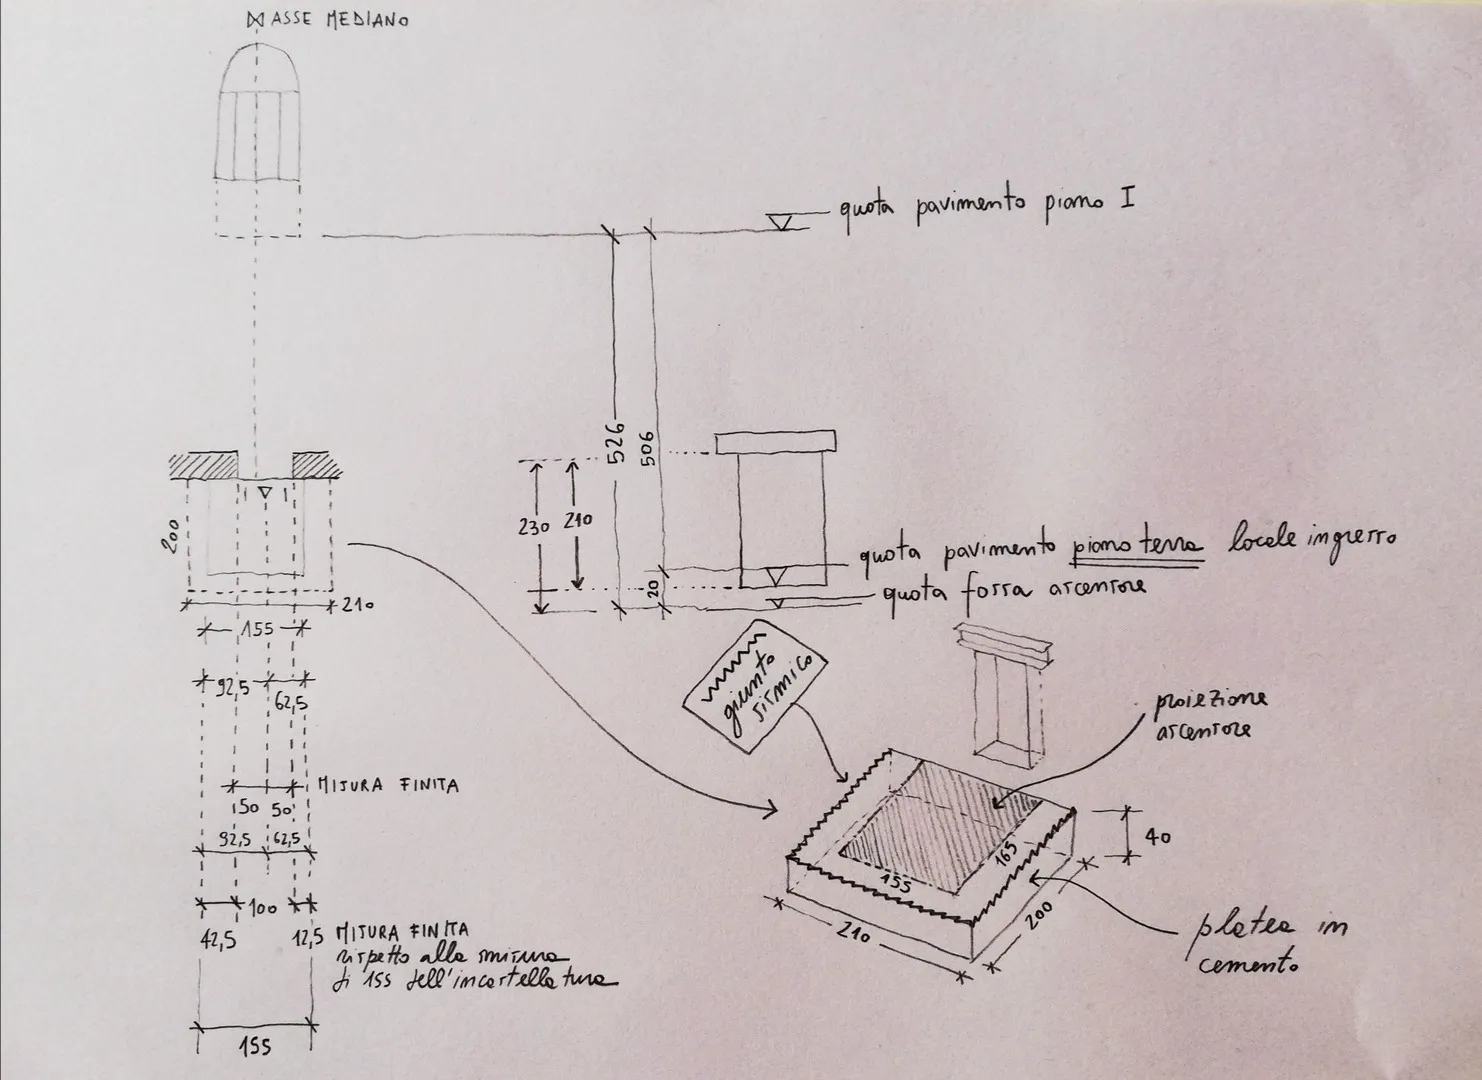 ASSE MEDIANO
quota pavimento piano I
526
506
230
210
20
quota pavimento piano terra locale ingresso
quota fossa ascensore
200
210
155
92,5
62,5
giunto
sismico
proiezione
ascensore
MISURA FINITA
50 50
92,5 62,5
155
165
40
210
200
platea in
cemento
100
42,5
12,5
MISURA FINITA
rispetto alla misura
di 155 dell'incastellatura
155